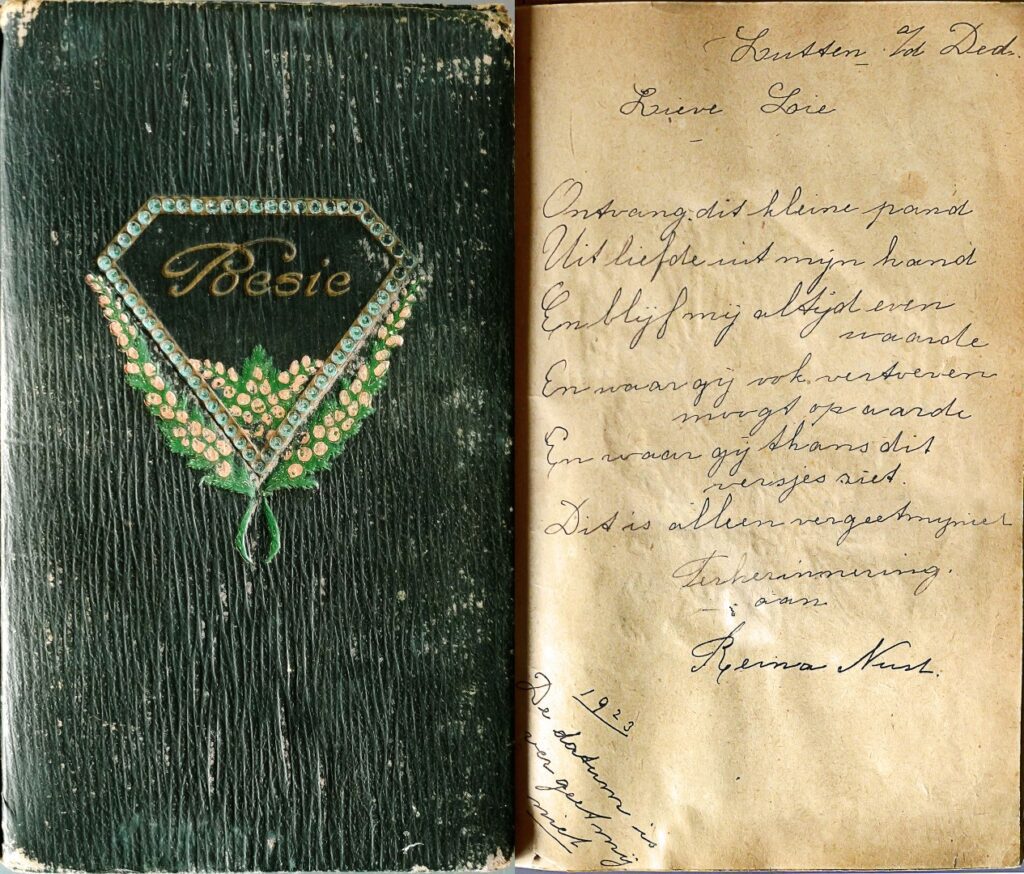 Poesie
Lutten a/d Ded.
Lieve Loie
Ontvang dit kleine pand
Uit liefde uit mijn hand
En blijf mij altijd even
waarde
En waar gij ook vertoeven
moogt op aarde
En waar gij thans dit
versjes ziet.
Dit is alleen vergeetmijniet
Terherinnering.
aan
Reina Nust.
1923
De datum is
vergeet mij
niet